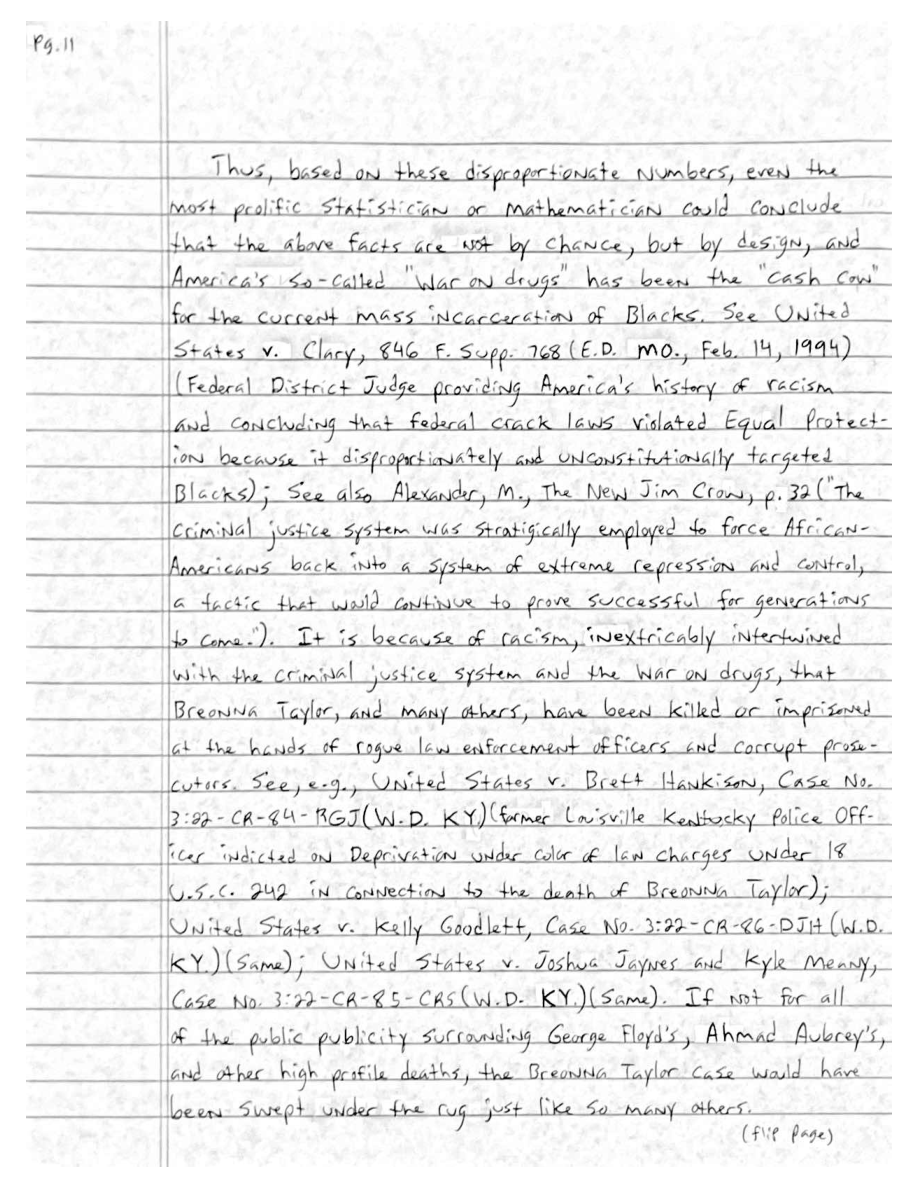 Pg. 11
Thus, based on these disproportionate numbers, even the
most prolific statistician or mathematician could conclude
that the above facts are not by chance, but by design, and
America's so-called "War on drugs" has been the "cash cow"
for the current mass incarceration of Blacks. See United
States v. Clary, 846 F. Supp. 768 (E.D. MO., Feb. 14, 1994)
(Federal District Judge providing America's history of racism
and concluding that federal crack laws violated Equal Protect-
ion because it disproportionately and unconstitutionally targeted
Blacks); See also Alexander, M., The New Jim Crow, p. 32 ("The
criminal justice system was stratigically employed to force African-
Americans back into a system of extreme repression and control,
a tactic that would continue to prove successful for generations
to come."). It is because of racism, inextricably intertwined
with the criminal justice system and the war on drugs, that
Breonna Taylor, and many others, have been killed or imprisoned
at the hands of rogue law enforcement officers and corrupt prose-
cutors. See, e.g., United States v. Brett Hankison, Case No.
3:22-CR-84-RGJ (W.D. KY.) (former Louisville Kentucky Police Off-
icer indicted on Deprivation under color of law charges under 18
U.S.C. 242 in connection to the death of Breonna Taylor);
United States v. Kelly Goodlett, Case No. 3:22-CR-86-DJH (W.D.
KY.) (Same); United States v. Joshua Jaynes and Kyle Meany,
Case No. 3:22-CR-85-CRS (W.D. KY.) (Same). If not for all
of the public publicity surrounding George Floyd's, Ahmad Aubrey's,
and other high profile deaths, the Breonna Taylor case would have
been swept under the rug just like so many others.
(flip page)